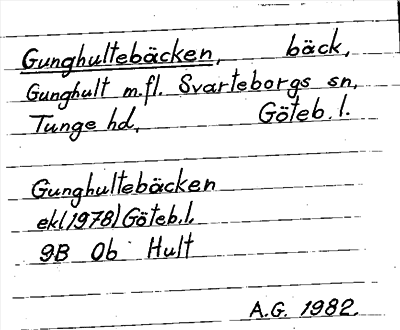 Gunghultebäcken, bäck,
Gunghult m.fl. Svarteborgs sn,
Tunge hd, Göteb. l.
Gunghultebäcken
ekl(1978) Göteb.l.
9B 0b Hult
A.G. 1982.